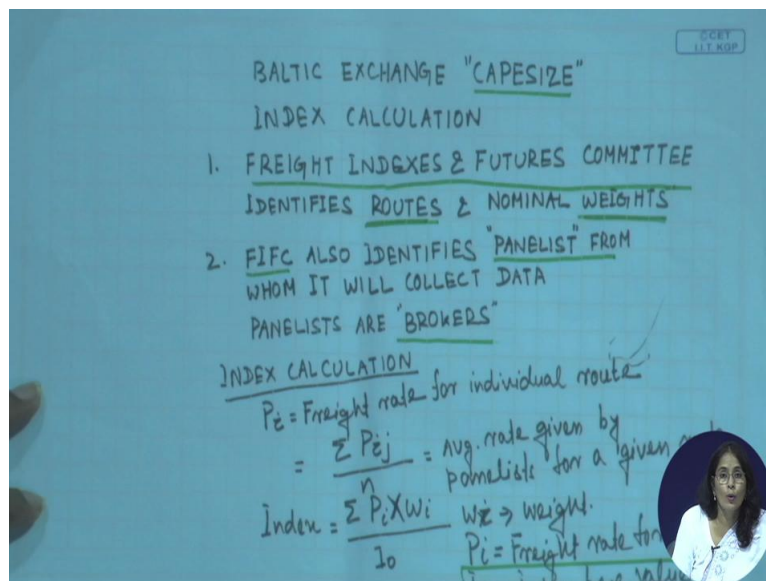 CCET
I.I.T. KGP
BALTIC EXCHANGE "CAPESIZE"
INDEX CALCULATION
1. FREIGHT INDEXES & FUTURES COMMITTEE
IDENTIFIES ROUTES & NOMINAL WEIGHTS
2. FIFC ALSO IDENTIFIES "PANELIST" FROM
WHOM IT WILL COLLECT DATA
PANELISTS ARE "BROKERS"
INDEX CALCULATION
Pi = Freight rate for individual route
= Σ Pij / n = Avg. rate given by
panelists for a given
Index = Σ Pi X Wi / I0 Wi → weight.
Pi = Freight rate for